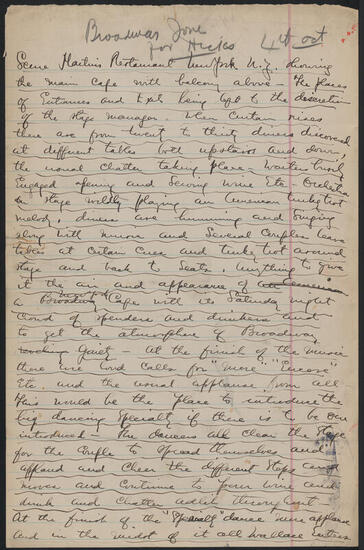 Broadway Jone
for Hicks
4th Oct
Scene Martins Restaurant New York N.Y. showing
the main cafe with balcony above - The places
of Entrances and Exits being left to the discretion
of the stage manager. When Curtain rises
there are from twenty to thirty diners discovered
at different tables both upstairs and down,
the usual chatter taking place - waiters busily
Engaged opening and serving wine Etc. Orchestra
on stage wildly playing an American turkey trot
melody, diners are humming and singing
along with music and several Couples leave
tables at certain cues and turkey trot around
stage and back to seats. Anything to give
it the air and appearance of
a New York Cafe with its Saturday night
crowd of spenders and drinkers and
to get the atmosphere of Broadway
gaiety - At the finish of the music
there are loud calls for "more" "Encore"
Etc. and the usual applause from all
This would be the place to introduce the
big dancing specialty if there is to be one
introduced. The dancers all clear the stage
for the couple to spread themselves and
applaud and cheer the different steps and
moves and continue to pour wine and
drink and chatter throughout
At the finish of the "specialty" dance more applause
and in the midst of it all Wallace enters